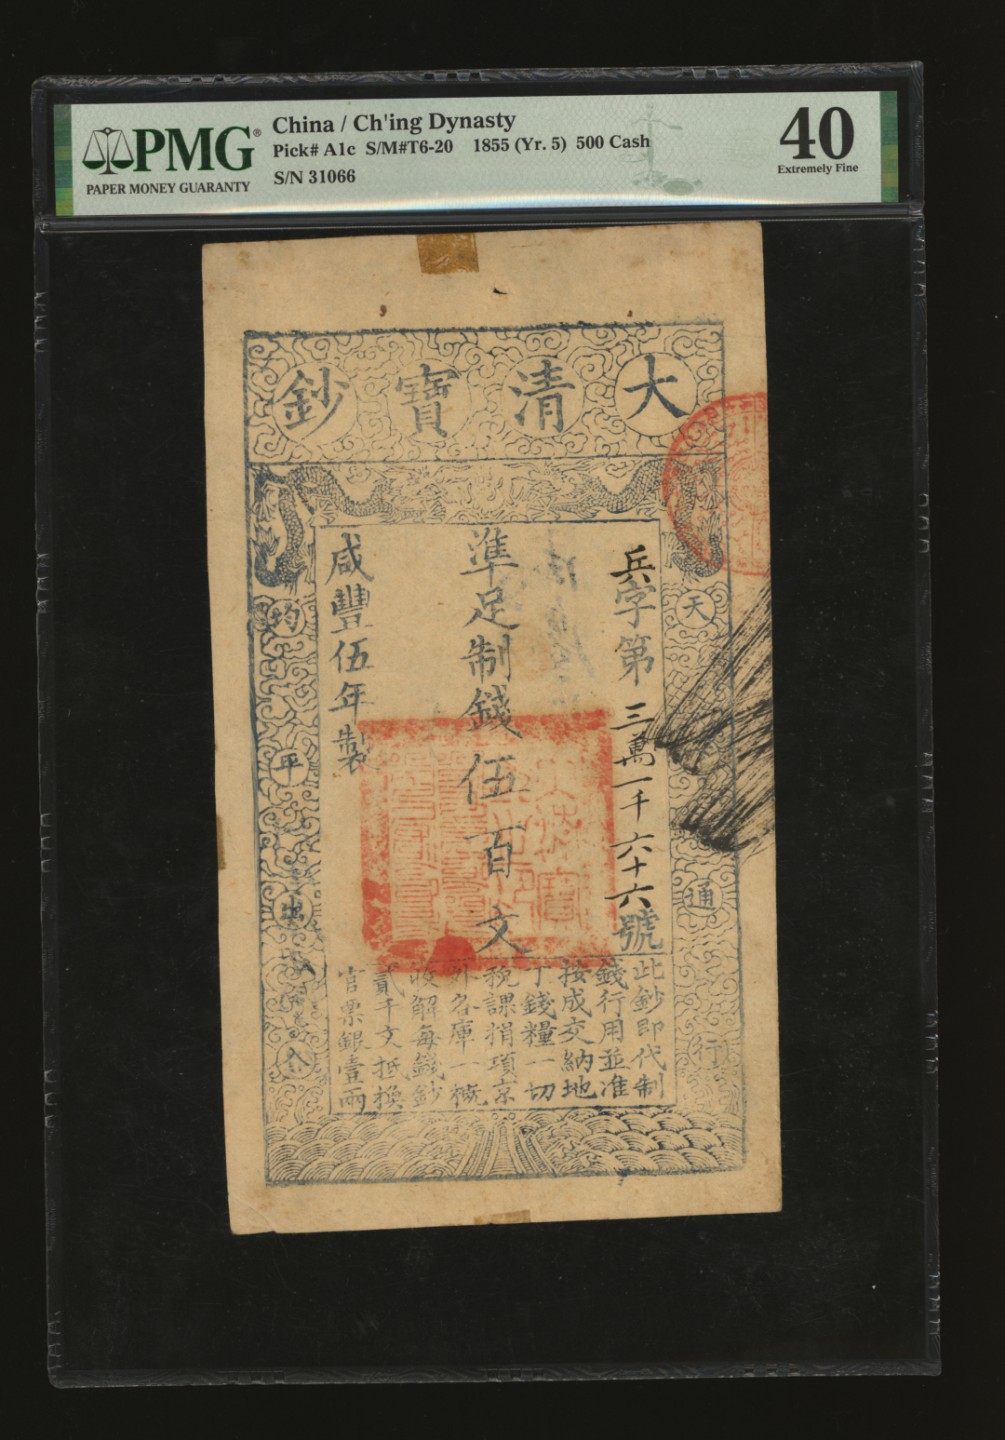 PMG®
PAPER MONEY GUARANTY
China / Ch'ing Dynasty
Pick# A1c S/M#T6-20 1855 (Yr. 5) 500 Cash
S/N 31066
40
Extremely Fine
大清寶鈔
天
通
行
兵字第三萬一千六十六號
準足制錢伍百文
咸豐伍年製
均
平
出
入
此鈔即代制
錢行用並准
按成交納地
丁錢糧一切
稅課捐項京
外各庫一概
收解每錢鈔
貳千文抵換
官票銀壹兩